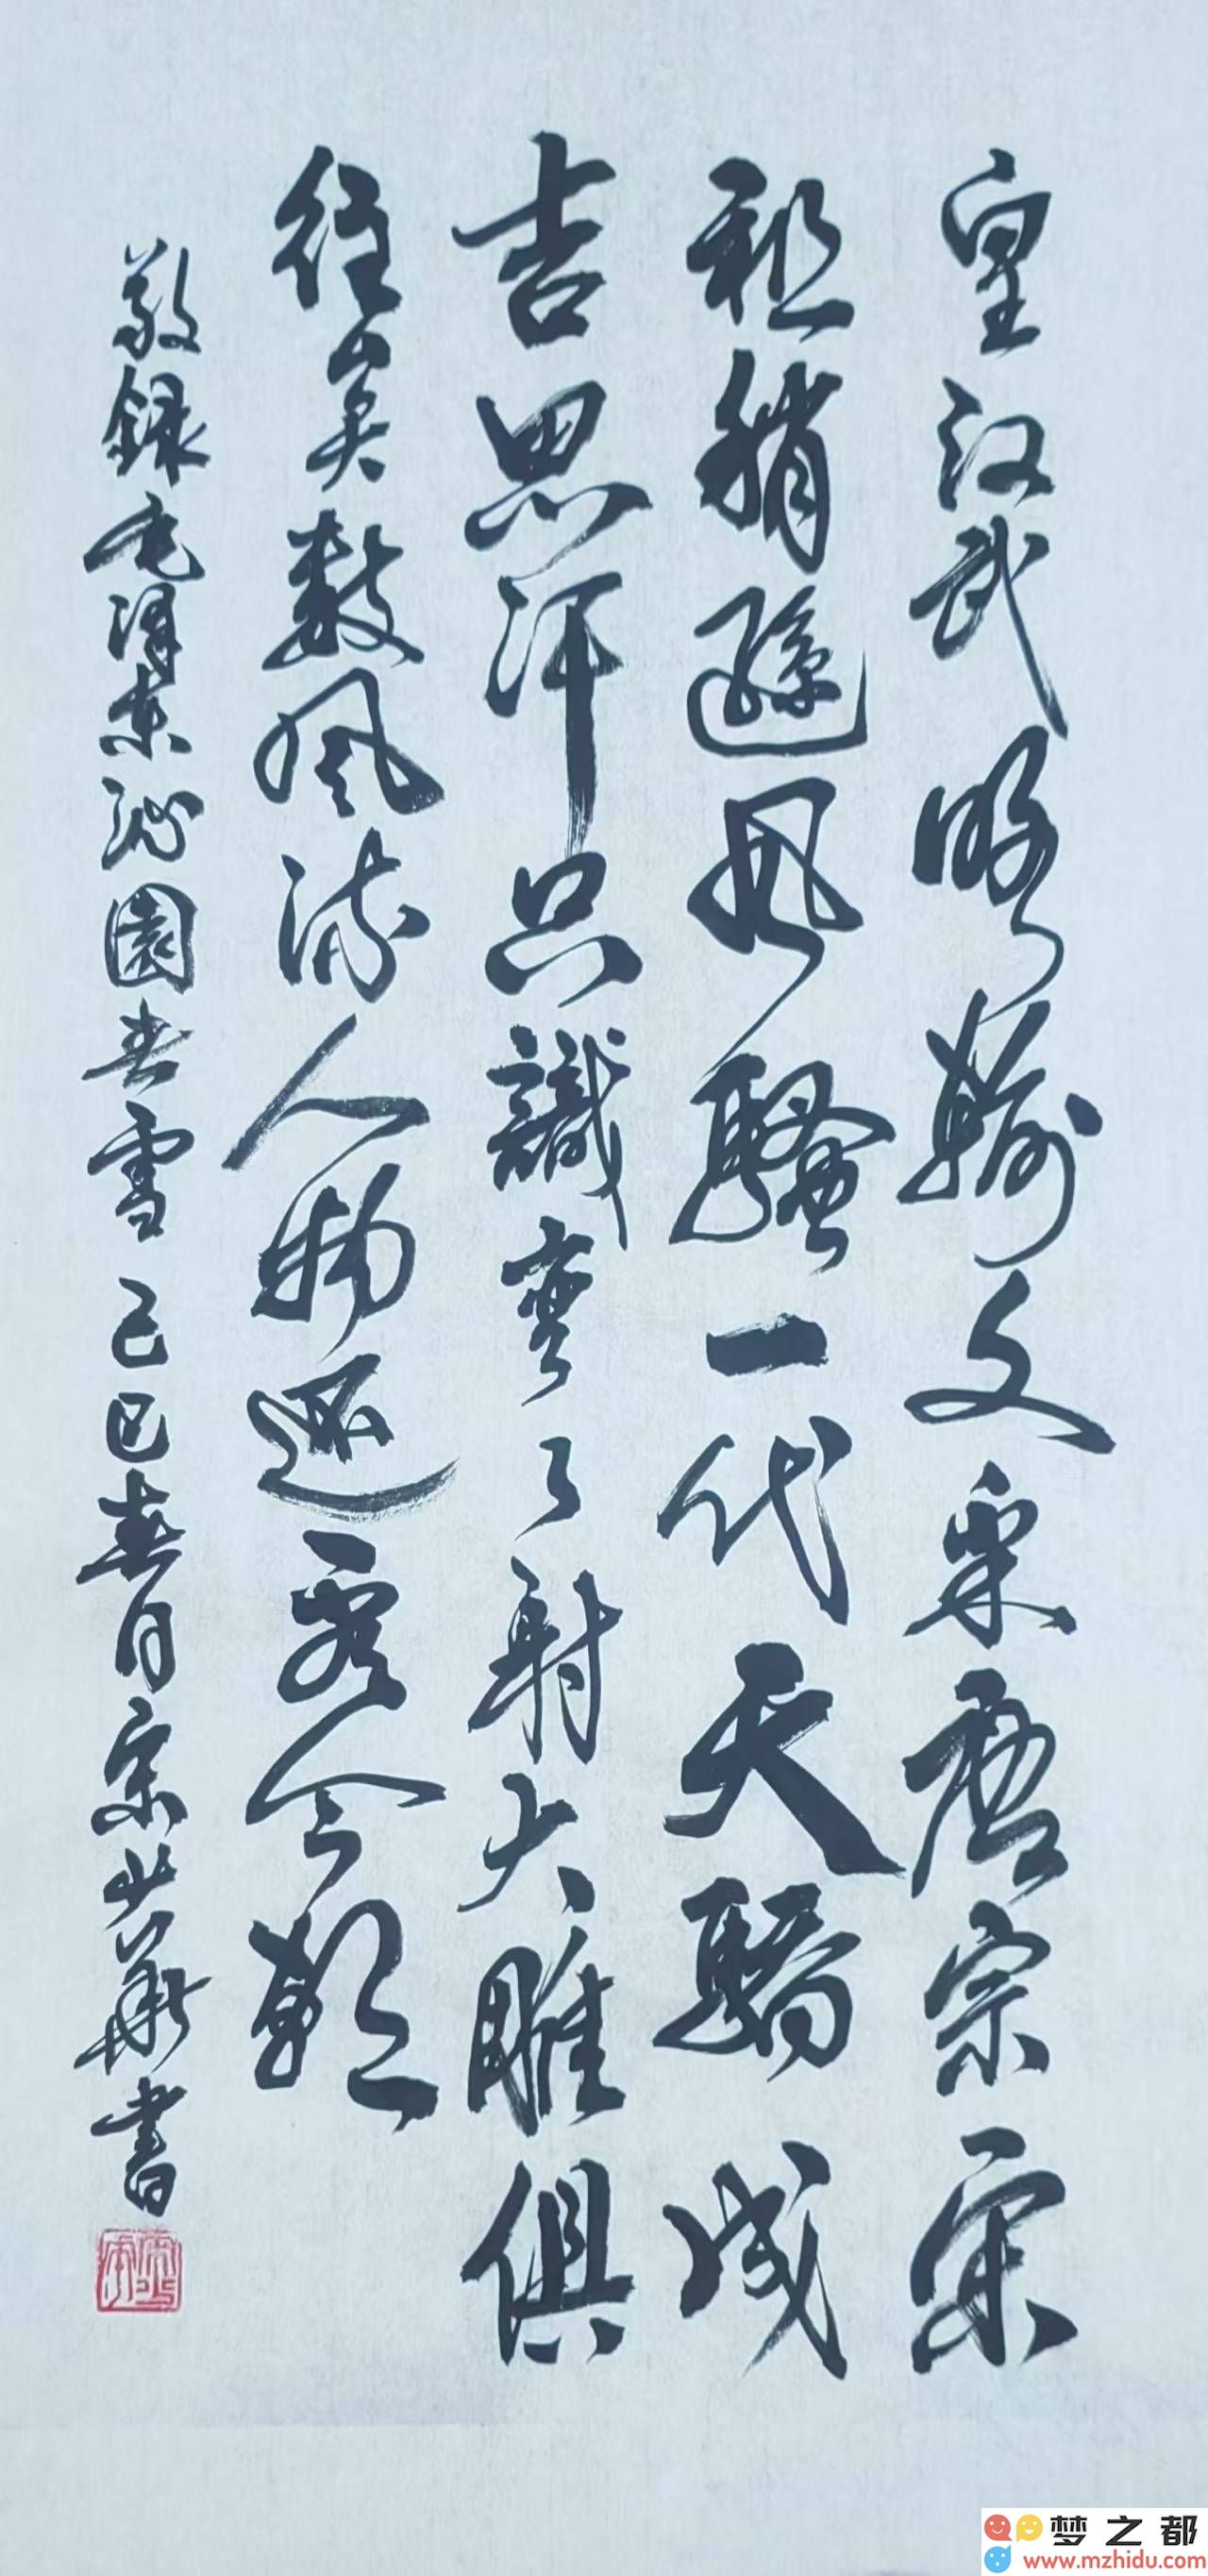 皇汉武略输文采唐宗宋
祖稍遜风騷一代天驕成
吉思汗只識弯弓射大雕俱
往矣数风流人物还看今朝
敬録毛泽东沁園春雪 乙巳春月華書
梦之都
www.mzhidu.com